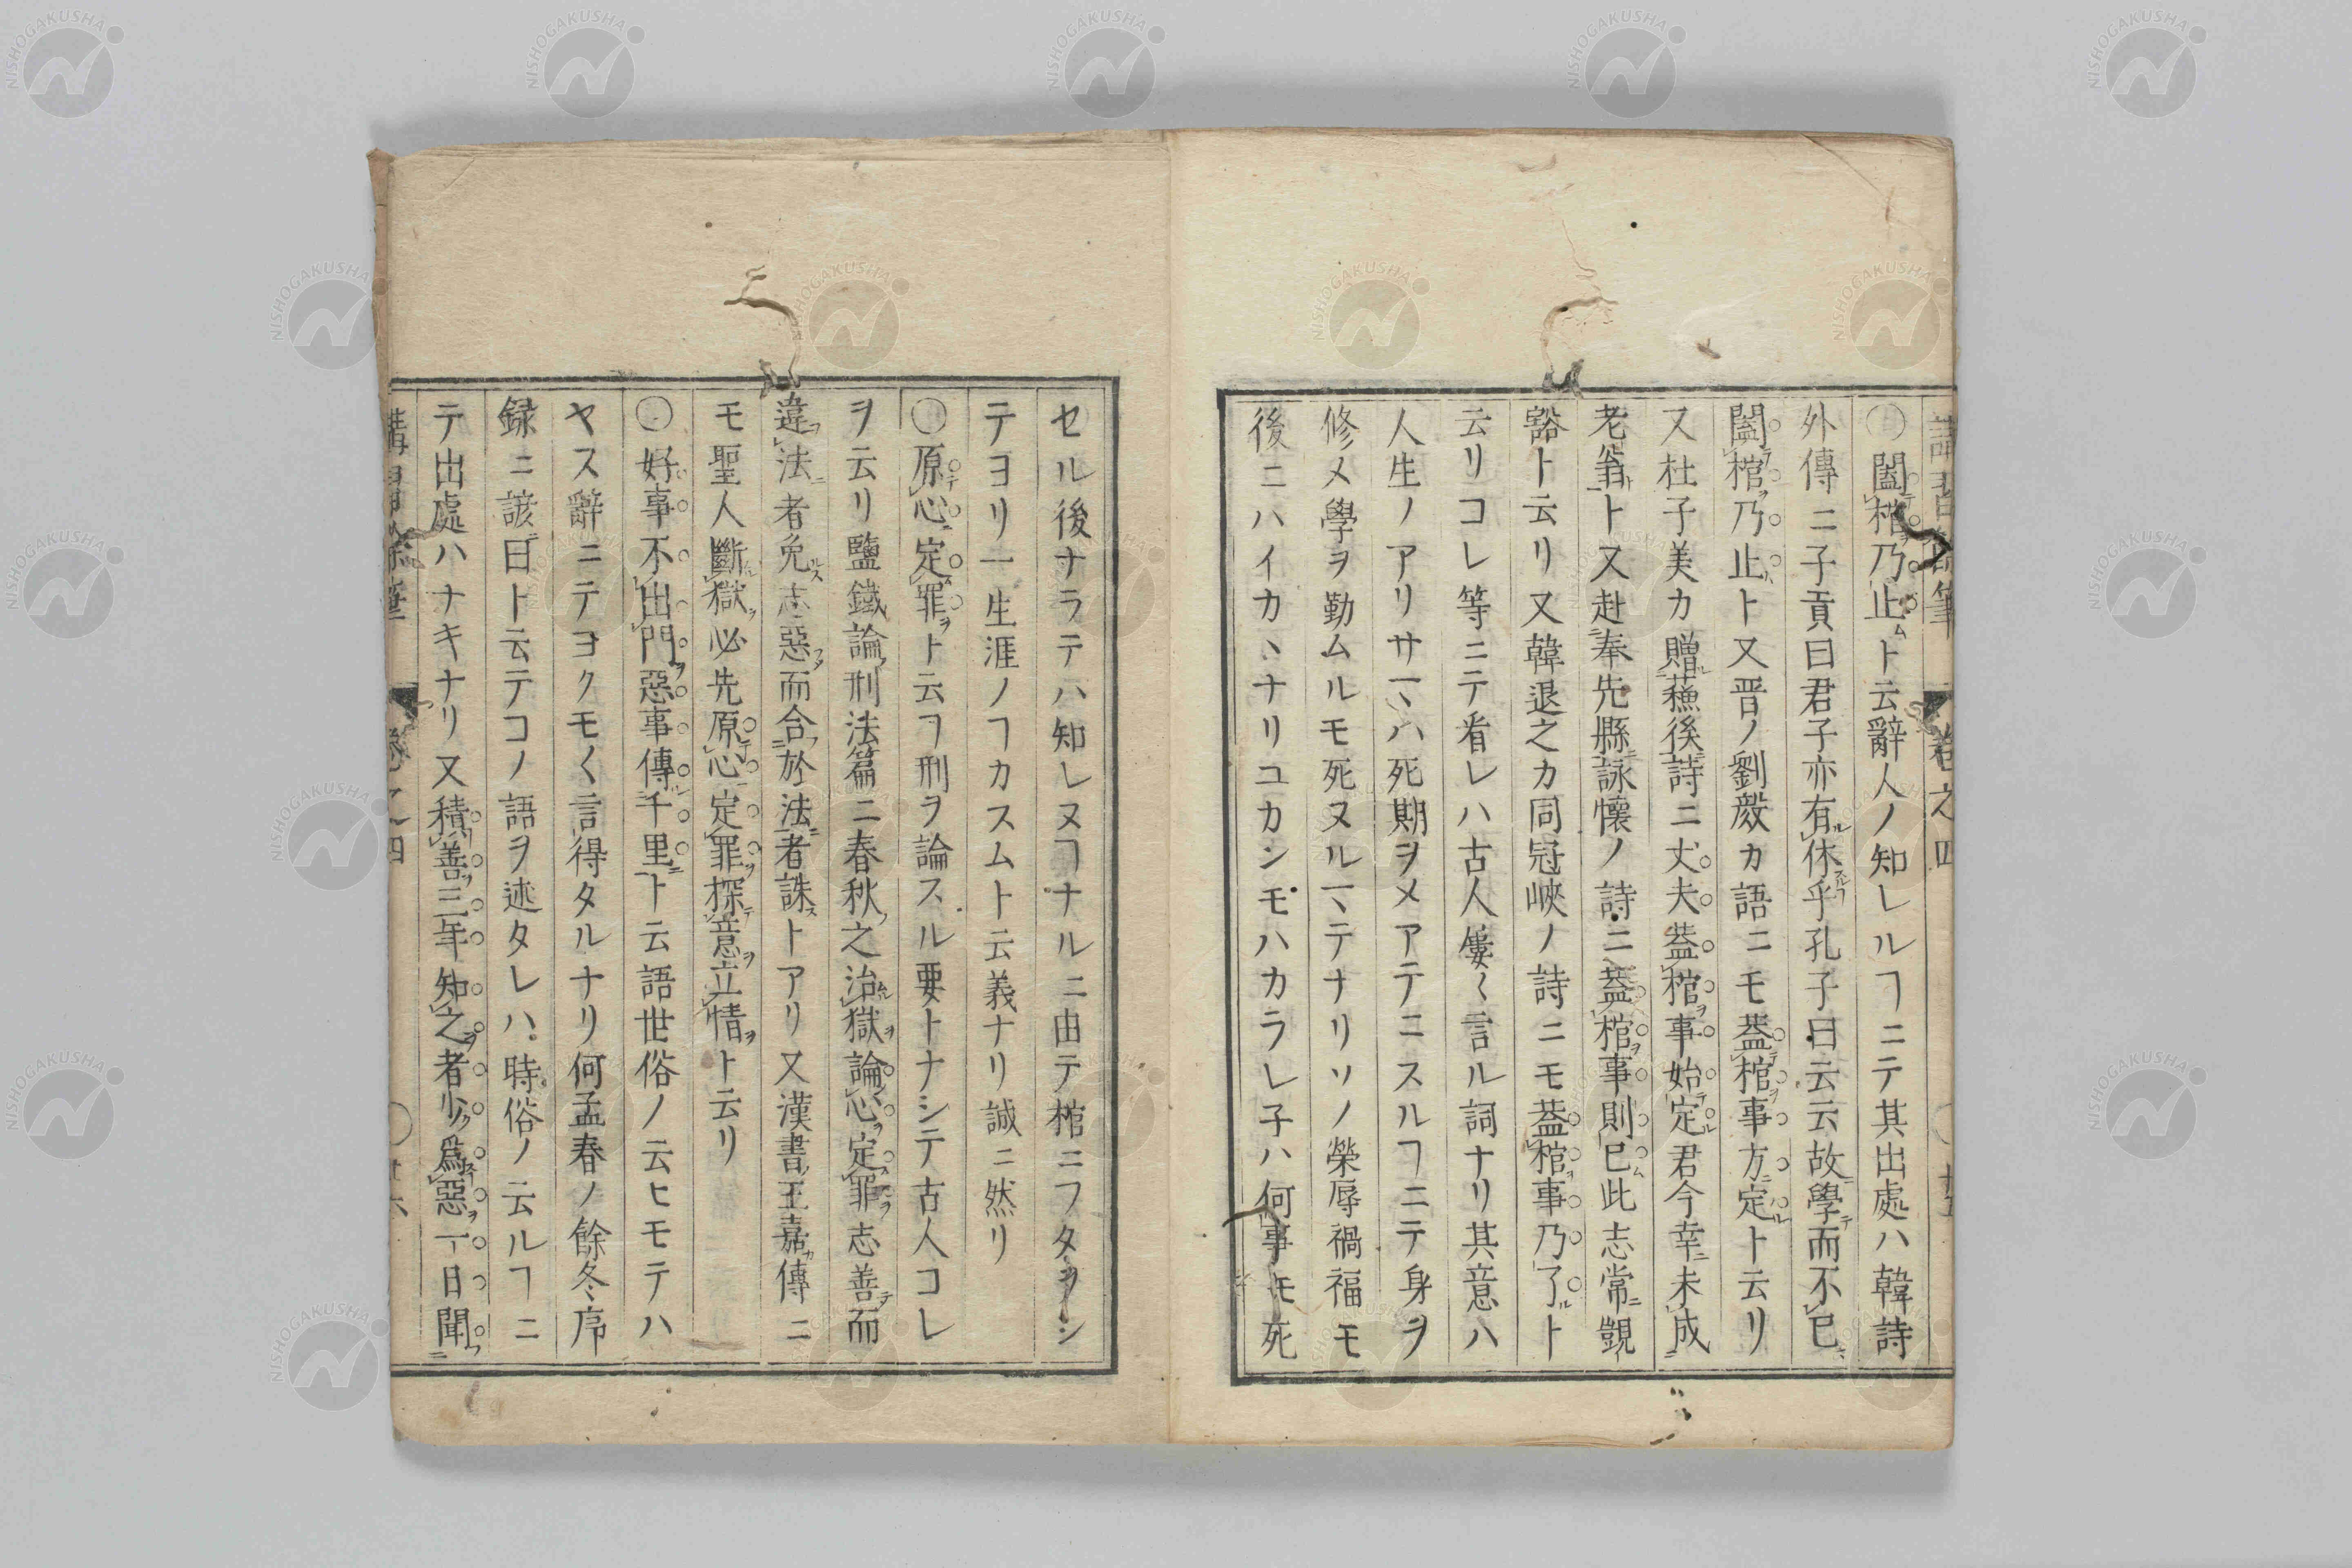 〇闔棺乃止ト云辭人ノ知レルヿニテ其出處ハ韓詩
外傳ニ子貢曰君子亦有休乎孔子曰云云故學而不已
闔棺乃止ト又晋ノ劉毅カ語ニモ蓋棺事方定ト云リ
又杜子美カ贈蘓後詩ニ丈夫蓋棺事始定君今幸未成
老翁ト又赴奉先縣詠懷ノ詩ニ蓋棺事則已此志常覬
豁ト云リ又韓退之カ同冠峽ノ詩ニモ蓋棺事乃了ト
云リコレ等ニテ看レハ古人屢〱言ル詞ナリ其意ハ
人生ノアリサマハ死期ヲメアテニスルヿニテ身ヲ
修メ學ヲ勤ムルモ死ヌルマテナリソノ榮辱禍福モ
後ニハイカヽナリユカンモハカラレ子ハ何事モ死
卷之四
セル後ナラテハ知レヌヿナルニ由テ棺ニフタヲシ
テヨリ一生涯ノヿカスムト云義ナリ誠ニ然リ
〇原心定罪ト云ヿ刑ヲ論スル要トナシテ古人コレ
ヲ云リ鹽鐵論刑法篇ニ春秋之治獄論心定罪志善而
違法者免志惡而合於法者誅トアリ又漢書王嘉傳ニ
モ聖人斷獄必先原心定罪探意立情ト云リ
〇好事不出門惡事傳千里ト云語世俗ノ云ヒモテハ
ヤス辭ニテヨクモ〱言得タルナリ何孟春ノ餘冬序
録ニ諺曰ト云テコノ語ヲ述タレハ時俗ノ云ルヿニ
テ出處ハナキナリ又積善三年知之者少爲惡一日聞